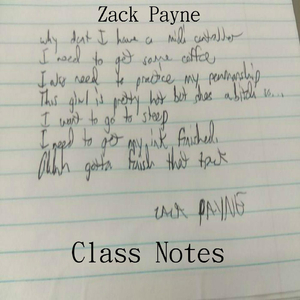 Zack Payne
why dont I have a midi controller
I need to get some coffee
I also need to practice my penmanship
This girl is pretty hot but shes a bitch
I want to go to sleep
I need to get my ink finished.
Ahhh gotta finish that
zack PAYNE
Class Notes